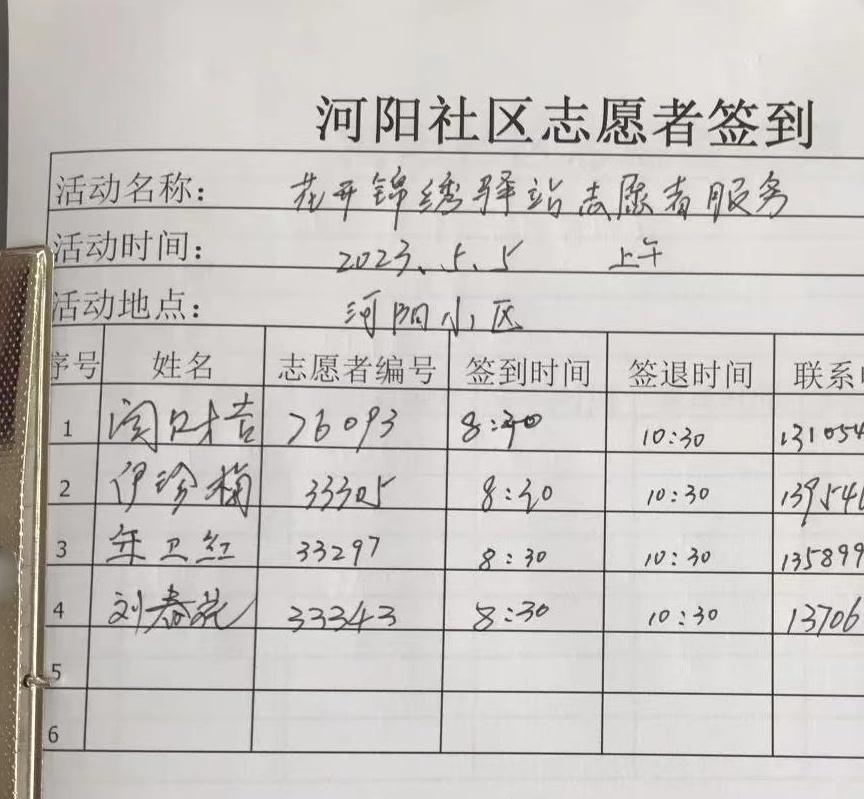 河阳社区志愿者签到
活动名称: 花开锦绣驿站志愿者服务
活动时间: 2023.5.5 上午
活动地点: 河阳小区
序号 姓名 志愿者编号 签到时间 签退时间 联系
1 闵财吉 76093 8:30 10:30 131054
2 伊珍梅 33305 8:30 10:30 139546
3 年卫红 33297 8:30 10:30 135899
4 刘春花 33343 8:30 10:30 13706
5
6